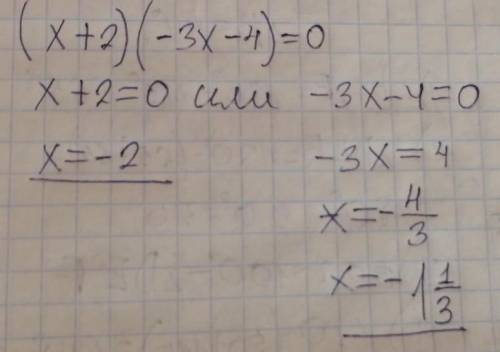 (x+2)(-3x-4)=0
x+2=0 или -3x-4=0
x=-2 -3x=4
x=-4/3
x=-1 1/3